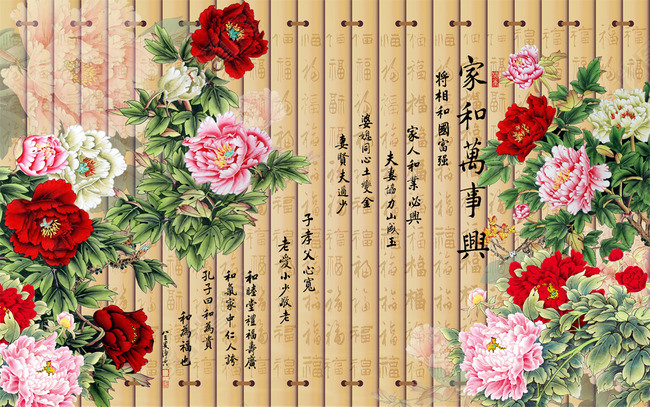 家和萬事興
將相和國富强
家人和業必興
夫妻協力山成玉
婆媳同心土變金
妻賢夫過少
子孝父心寬
老愛小少敬老
和睦堂禮福壽廣
和氣家中仁人誇
孔子曰和為貴
和為福也